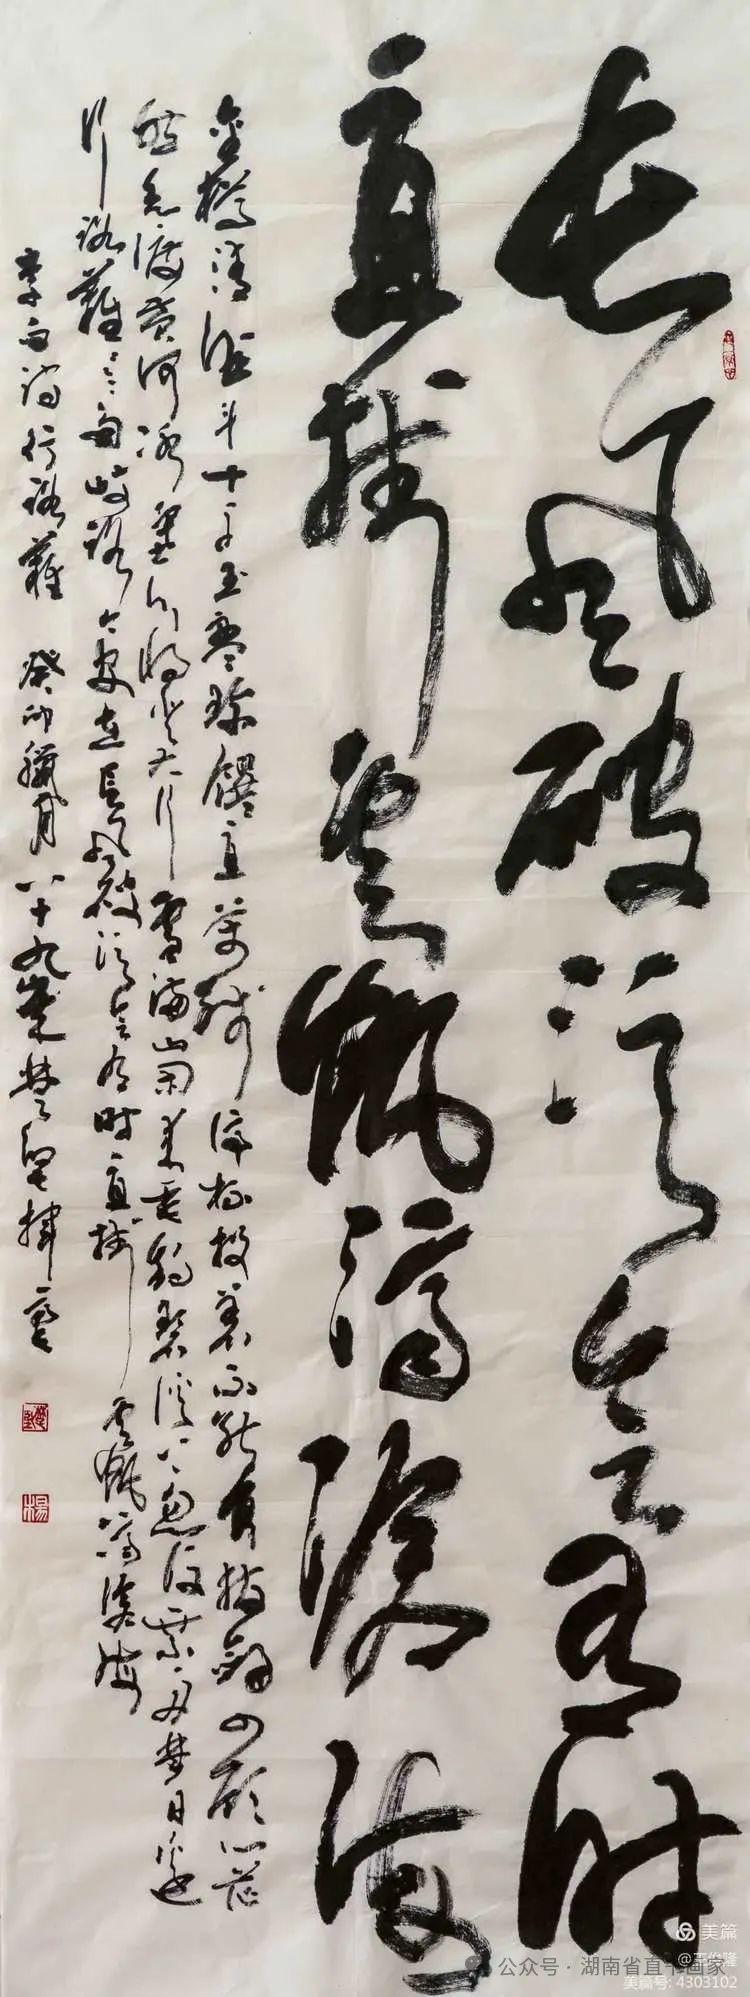 长风破浪会有时
直挂云帆济沧海
金樽清酒斗十千玉盘珍馐直万钱停杯投箸不能食拔剑四顾心茫
然欲渡黄河冰塞川将登太行雪满山闲来垂钓碧溪上忽复乘舟梦日边
行路難多歧路今安在长风破浪会有时直挂云帆济沧海
李白诗行路難 癸卯臘月八十九 挥毫
杨
美篇
公众号·湖南省直书画家
美篇号: 4303102